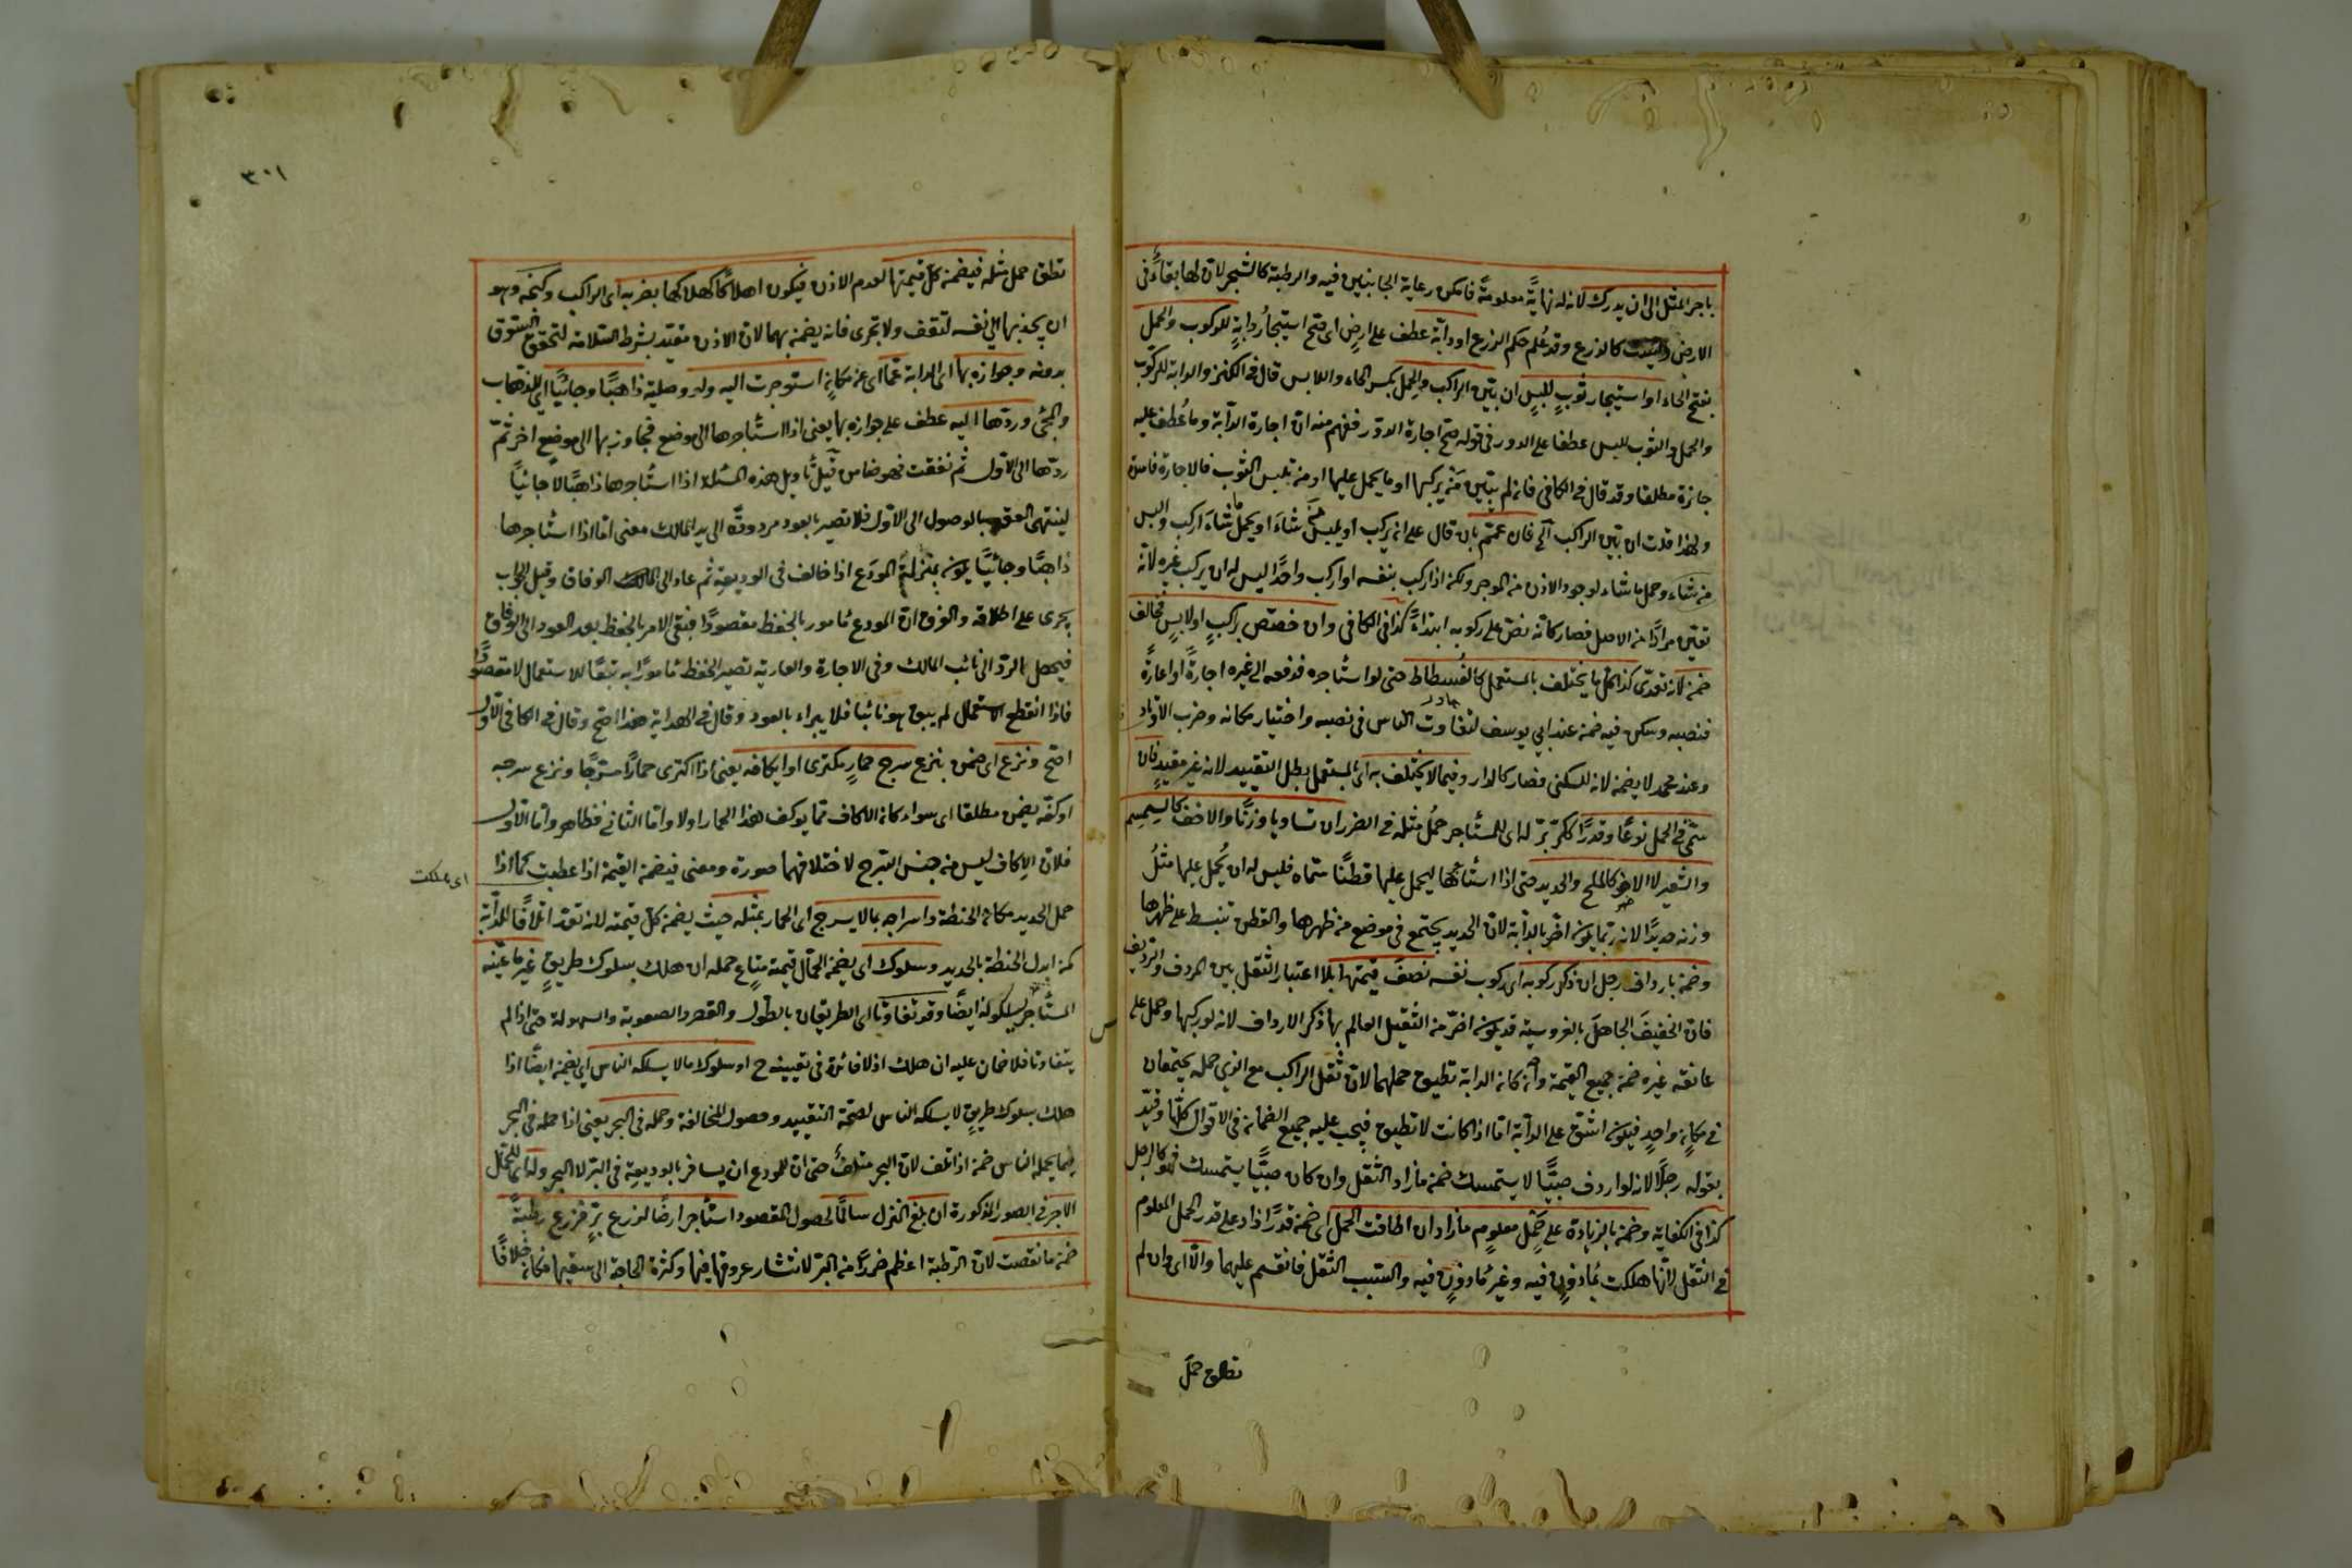 باجر المثل الى ان يدرك لانه له نهايةً معلومةً فامكن رعاية الجانبين فيه والرطبة كالشجر لان لها بقاءً فى
الارض كالزرع وقد عُلم حكم الزرع او دابّة عطف على ارضٍ اى صح استيجارُ دابةٍ للركوب والحمل
بفتح الحاء او استيجار ثوبٍ للبسٍ ان بيّن الراكب والحمل بكسر الحاء واللابس قال فى الكنز والدابة للركوب
والحمل والثوب للبس عطفا على الدور فى قوله صح اجارة الدور ففهم منه انّ اجارة الدابّة وما عُطف عليه
جائزة مطلقا وقد قال فى الكافى فان لم يبيّن مَنْ يركبها او ما يحمل عليها او من يلبس الثوب فالاجارة فاسدة
ولهذا قلت ان بيّن الراكب الخ فان عمّم بان قال على ان يركب او يلبس مَنْ شاءَ او يحمل ما شاءَ اركب والبس
من شاء وحمل ما شاء لوجود الاذن من الموجر ولكن اذا ركب بنفسه او اركب واحدًا ليس له ان يركب غيره لانّه
تعيّن مرادًا من الاصل فصار كانّه نصّ على ركوبه ابتداءً كذا فى الكافى وان خصّص براكبٍ او لابسٍ فخالف
ضمن لانه تعدّى كذا كل ما يختلف بالمستعمل كالفُسطاط حتى لو استأجره فدفعه الى غيره اجارةً او اعارةً
فنصبه وسكن فيه ضمن عند ابى يوسف لتفاوت الناس فى نصبه واختيار مكانه وضرب الاوتاد
وعند محمد لا يضمن لانه للسكنى فصار كالدار وفيما لا يختلف به اى بالمستعمل بطل التقييد لانه غير مقيدٍ فان
سمّى فى الحمل نوعًا وقدرًا ككرّ برّ له اى للمستأجر حملُ مثله فى الضرر ان تساويا وزنًا والاخف كالسمسم
والشعير لا الاضر كالملح والحديد حتى اذا استأجرها ليحمل عليها قطنًا سمّاه فليس له ان يحمل عليها مثلُ
وزنه حديدًا لانه ربّما يكون اضرّ بالدابّة لانّ الحديد يجتمع فى موضع من ظهرها والقطن ينبسط على ظهرها
وضمن بارداف رجل ان ذكر ركوبه اى ركوب نفسه نصفَ قيمتها بلا اعتبار الثقل بين المردف والرديف
فانّ الخفيفَ الجاهلَ بالفروسيّة قد يكون اضرّ من الثقيل العالم بها ذكر الارداف لانه لو ركبها وحمل على
عاتقه غيره ضمن جميع القيمة وان كانت الدابة تطيق حملهما لانّ ثقل الراكب مع الذى حمله يجتمعان
فى مكانٍ واحدٍ فيكون اشقّ على الدابّة امّا اذا كانت لا تطيق فيجب عليه جميع الضمان فى الاقوال كلّها وقيّد
بقوله رجلًا لانه لو اردف صبيًّا لا يستمسك ضمن ما زاد الثقل وان كان صبيًّا يستمسك فهو كالرجل
كذا فى الكفاية وضمن بالزيادة على حملٍ معلومٍ ما زاد ان اطاقت الحمل اى ضمن قدرًا زاد على قدر الحمل المعلوم
فى الثقل لانّها هلكت بمأذونٍ فيه وغير مأذونٍ فيه والسّبب الثقل فانقسم عليهما والّا اى وان لم
تطق حمل
٣٠١
تطق حمل مثله فيضمن كلّ قيمتها لعدم الاذن فيكون اهلاكًا كهلاكها بضربه اى الراكب وكبحه وهو
ان يجذبها الى نفسه لتقف ولا تجرى فانه يضمن بهما لانّ الاذن مقيّد بشرط السّلامة لتحقق السّوق
بدونه وجوازه بها اى الدابة عمّا اى عن مكانٍ استوجرت اليه ولو وصليّة ذاهبًا وجائيًا اى للذهاب
والمجئ وردّها اليه عطف على جوازه بها يعنى اذا استأجرها الى موضع فجاوز بها الى موضع اخر ثمّ
ردّها الى الاوّل ثم نفقت فهو ضامن قيل تأويل هذه المسئلة اذا استأجرها ذاهبًا لا جائيًا
لينتهى العقد بالوصول الى الاوّل فلا تصير بالعود مردودةً الى يد المالك معنى امّا اذا استأجرها
ذاهبًا وجائيًا يكون بمنزلة المودَع اذا خالف فى الوديعة ثم عاد الى الوفاق وقيل الجواب
يجرى على اطلاقه والفرق انّ المودع مأمور بالحفظ مقصودًا فبقى الامر بالحفظ بعد العود الى الوفاق
فيحصل بالردّ الى نائب المالك وفى الاجارة والعارية تصير الحفظ مأمورًا به تبعًا للاستعمال لا مقصودًا
فاذا انقطع الاستعمال لم يبق هو نائبا فلا يبراء بالعود وقال فى الهداية هذا اصح وقال فى الكافى الاوّل
اصح ونزع اى ضمن بنزع سرج حمارٍ مكترى او ايكافه يعنى اذا اكترى حمارًا مسرّجًا ونزع سرجه
اوكفّه يضمن مطلقا اى سواء كان الاكاف ممّا يوكف هذا الحمار او لا وامّا الثانى فظاهر وامّا الاوّل
فلانّ الاكاف ليس من جنس السّرج لاختلافهما صورة ومعنى فيضمن القيمة اذا عطبت كما اذا
اى هلكت
حمل الحديد مكان الحنطة واسراجه بما لا يسرج اى الحمار بمثله حيث يضمن كلّ قيمته لانه تعدّ اتلافًا للدابّة
كمن ابدل الحنطة بالحديد وسلوك اى يضمن الحمّال قيمة متاعٍ حمله ان هلك بسلوك طريقٍ غير ما عيّنه
المستأجر يسلكونه ايضًا وقد تفاوتا اى الطريقان بالطول والقصر والصعوبة والسهولة حتى اذا لم
يتفاوتا فلا ضمان عليه ان هلك اذ لا فائدة فى تعيينه ح او سلوك ما لا يسلكه الناس اى يضمن ايضًا اذا
هلك بسلوك طريقٍ لا يسلكه الناس لصحّة التقييد وحصول المخالفة وحمله فى البحر يعنى اذا حمله فى البحر
فيما يحمله الناس ضمن اذا تلف لانّ البحر متلفٌ حتى انّ للمودع ان يسافر بالوديعة فى البرّ لا البحر وله اى للحمّال
الاجر فى الصور المذكورة ان بلغ المنزل سالمًا لحصول المقصود استأجر ارضًا لزرع برٍّ فزرع رطبةً
ضمن ما نقصت لانّ الرّطبة اعظم ضررًا من البرّ لانتشار عروقها فيها وكثرة الحاجة الى سقيها فكان خلافًا